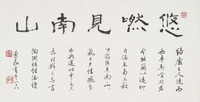 悠然見南山
結廬在人境而
無車馬喧問君
何能爾心遠地
自偏采菊東籬
下悠然見南山
山氣日夕佳飛
鳥相與還此中有
真意欲辨已忘言
陶淵明飲酒詩